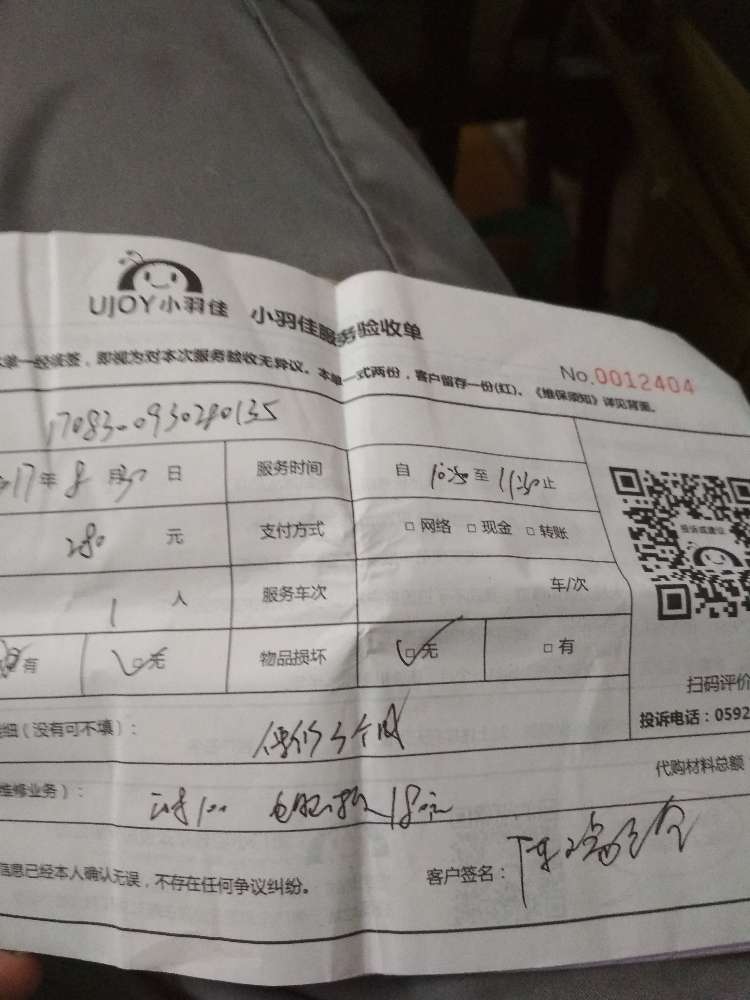 UJOY小羽佳 小羽佳服务验收单
单一经签签，即视为对本次服务验收无异议。本单一式两份，客户留存一份(红)。《维保须知》详见背面。
No.0012404
170830093040135
17年8月30日 服务时间 自10:30至11:30止
280元 支付方式 □网络 □现金 □转账
投诉或建议
1人 服务车次 车/次
有 □无 物品损坏 □无 □有
扫码评价
投诉电话：0592
细（没有可不填）： 保修3个月
代购材料总额
维修业务）： 100 180元
信息已经本人确认无误，不存在任何争议纠纷。 客户签名：